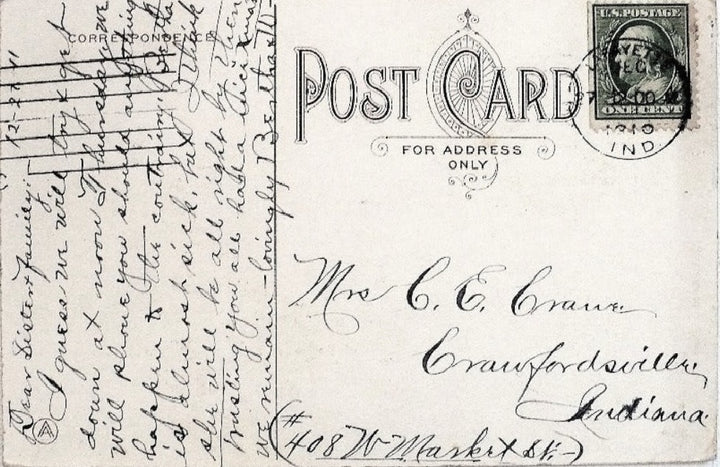 CORRESPONDENCE
12-27-11
Dear Sister & family:
I guess we will try & get
down at noon Thursday, we
will phone you should anything
happen to the contrary.
is almost sick, but I think
she will be all right by then
trusting you all had a nice Xmas
We remain - lovingly Bertha
POST CARD
FOR ADDRESS
ONLY
U.S. POSTAGE
ONE CENT
LAFAYETTE
DEC
IND.
Mrs C. E. Crane
Crawfordsville,
Indiana.
(#408 W Market St.-)